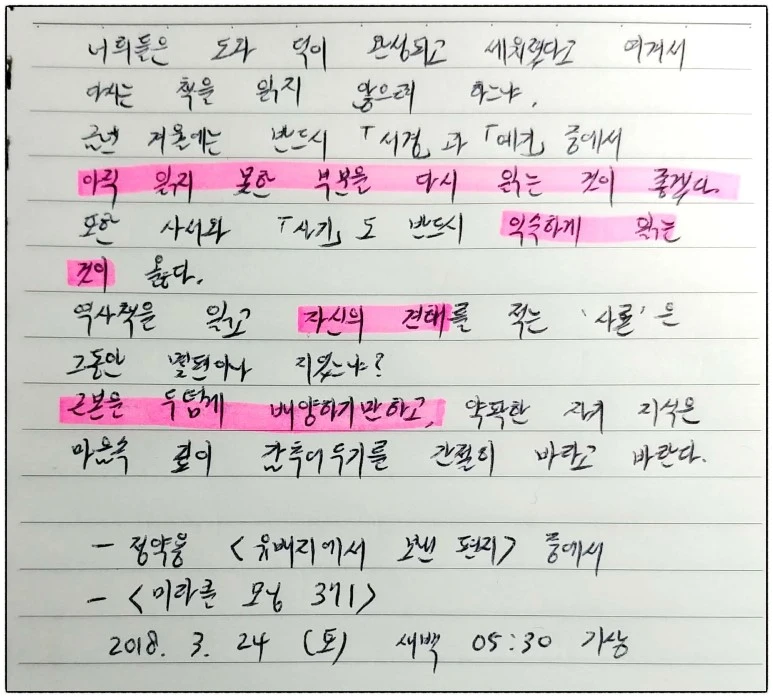 너희들은 도와 덕이 완성되고 세워졌다고 여겨서
다시는 책을 읽지 않으려 하느냐.
금년 겨울에는 반드시 「서경」과 「예전」 중에서
아직 읽지 못한 부분을 다시 읽는 것이 좋겠다.
또한 사서와 「사기」도 반드시 익숙하게 읽는
것이 옳다.
역사책을 읽고 자신의 견해를 적는 '사론'은
그동안 몇편이나 지었느냐?
근본은 두텁게 배양하기만하고, 얄팍한 자기 지식은
마음속 깊이 감추어두기를 간절히 바라고 바란다.
- 정약용 <유배지에서 보낸 편지> 중에서
- <미라클 모닝 371>
2018. 3. 24 (토) 새벽 05:30 기상